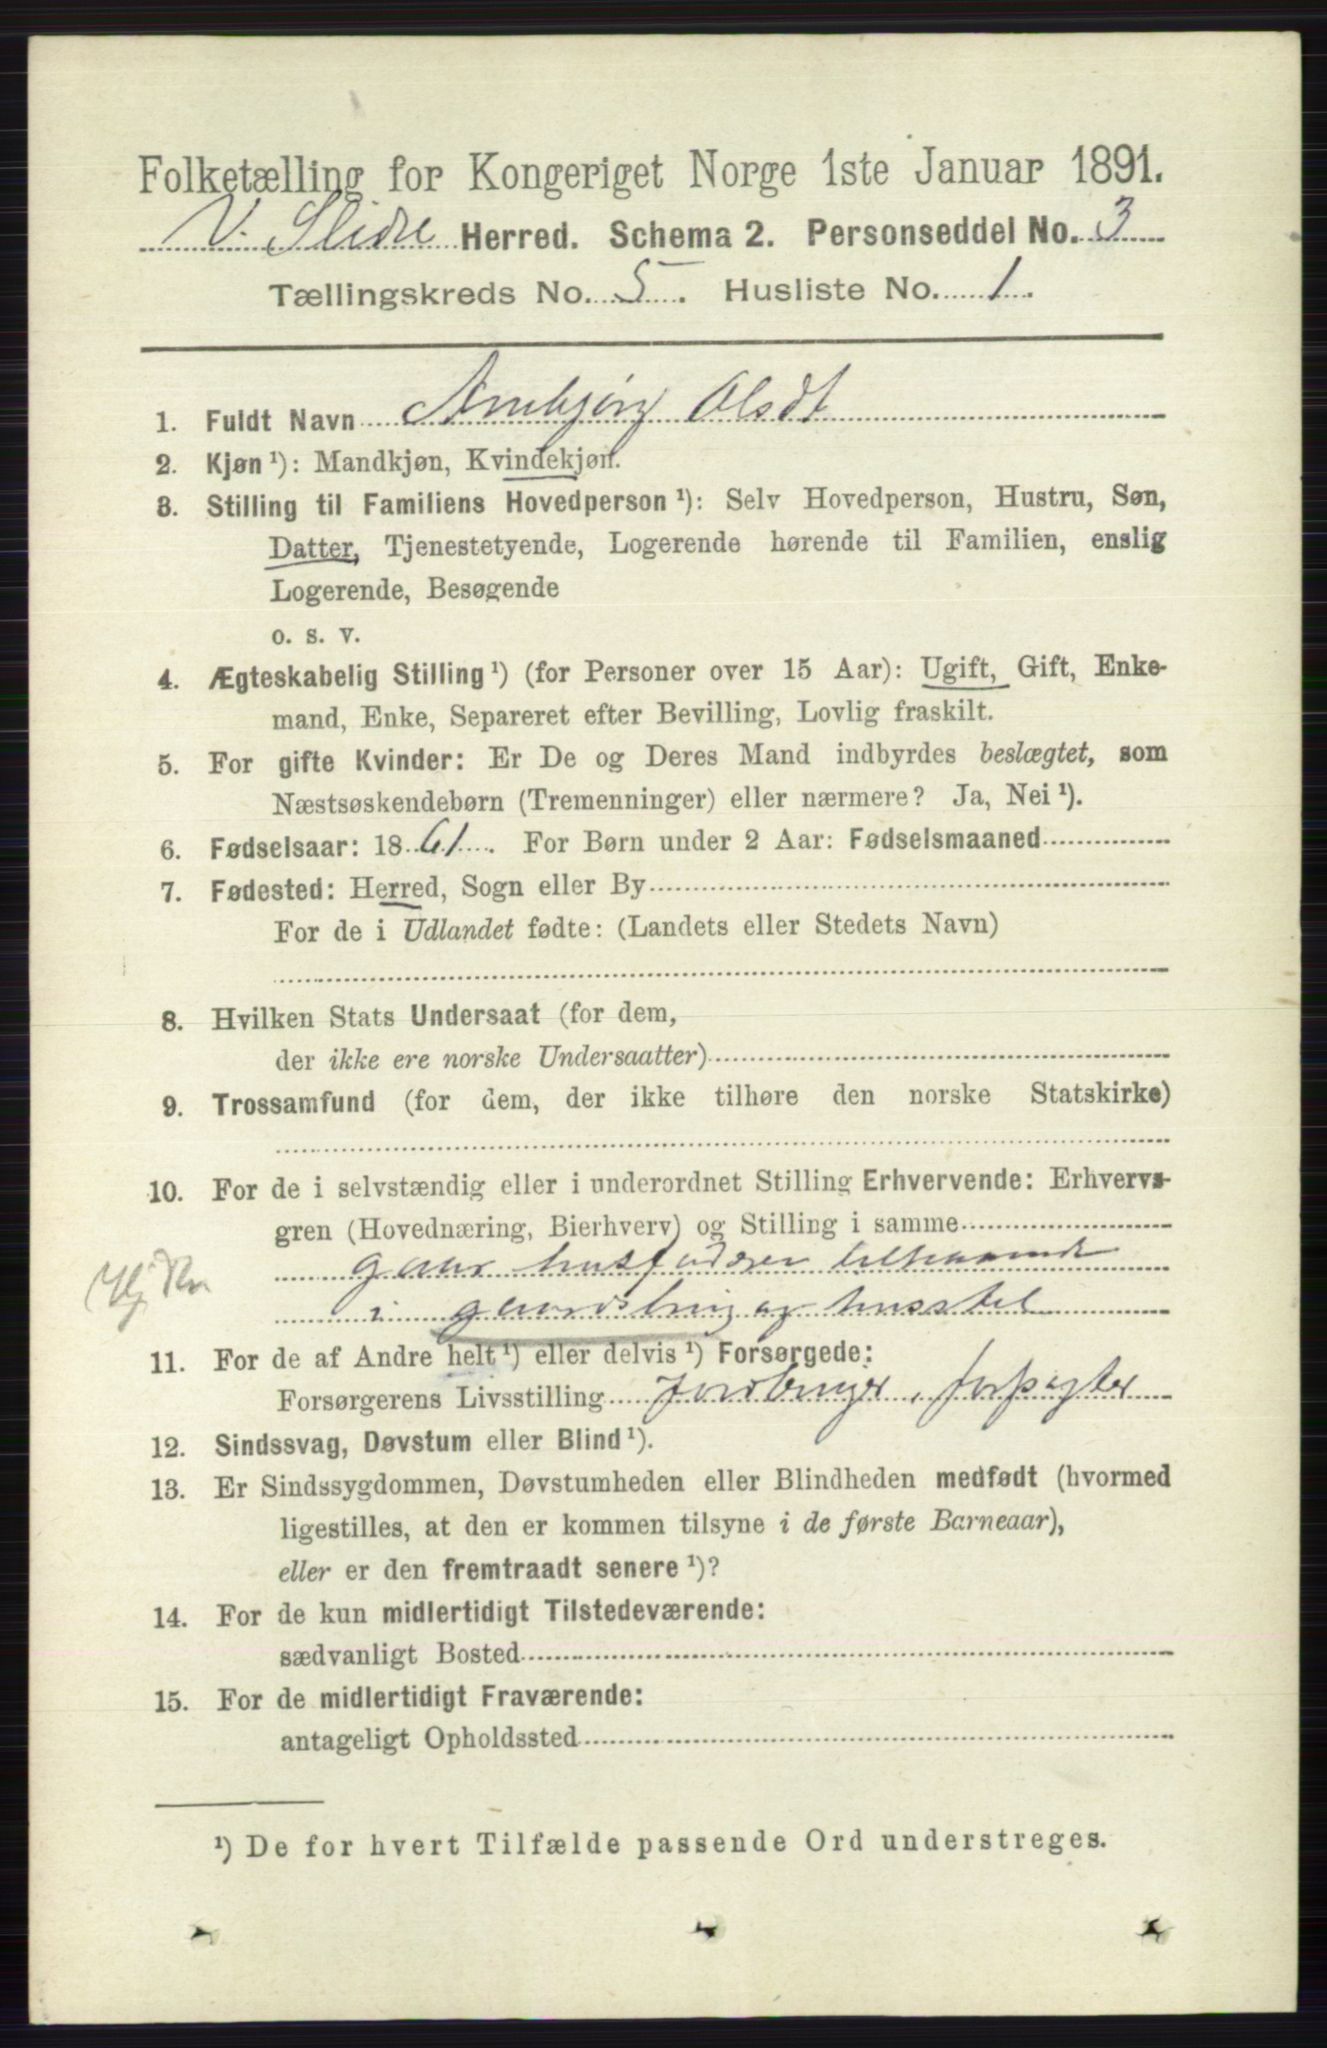 Folketælling for Kongeriget Norge 1ste Januar 1891.
V. Slidre Herred. Schema 2. Personseddel No. 3
Tællingskreds No. 5. Husliste No. 1.
1. Fuldt Navn Arnbjørg Olsdt
2. Kjøn ¹): Mandkjøn, Kvindekjøn.
3. Stilling til Familiens Hovedperson ¹): Selv Hovedperson, Hustru, Søn,
Datter, Tjenestetyende, Logerende hørende til Familien, enslig
Logerende, Besøgende
o. s. v.
4. Ægteskabelig Stilling ¹) (for Personer over 15 Aar): Ugift, Gift, Enke-
mand, Enke, Separeret efter Bevilling, Lovlig fraskilt.
5. For gifte Kvinder: Er De og Deres Mand indbyrdes beslægtet, som
Næstsøskendebørn (Tremenninger) eller nærmere? Ja, Nei ¹).
6. Fødselsaar: 1861. For Børn under 2 Aar: Fødselsmaaned
7. Fødested: Herred, Sogn eller By
For de i Udlandet fødte: (Landets eller Stedets Navn)
8. Hvilken Stats Undersaat (for dem,
der ikke ere norske Undersaatter)
9. Trossamfund (for dem, der ikke tilhøre den norske Statskirke)
10. For de i selvstændig eller i underordnet Stilling Erhvervende: Erhvervs-
gren (Hovednæring, Bierhverv) og Stilling i samme
gaar husfaderen tilhaande
i gaardsbrug og husstel
11. For de af Andre helt ¹) eller delvis ¹) Forsørgede:
Forsørgerens Livsstilling Jordbruger, forpagter
12. Sindssvag, Døvstum eller Blind ¹).
13. Er Sindssygdommen, Døvstumheden eller Blindheden medfødt (hvormed
ligestilles, at den er kommen tilsyne i de første Barneaar),
eller er den fremtraadt senere ¹)?
14. For de kun midlertidigt Tilstedeværende:
sædvanligt Bosted
15. For de midlertidigt Fraværende:
antageligt Opholdssted
¹) De for hvert Tilfælde passende Ord understreges.